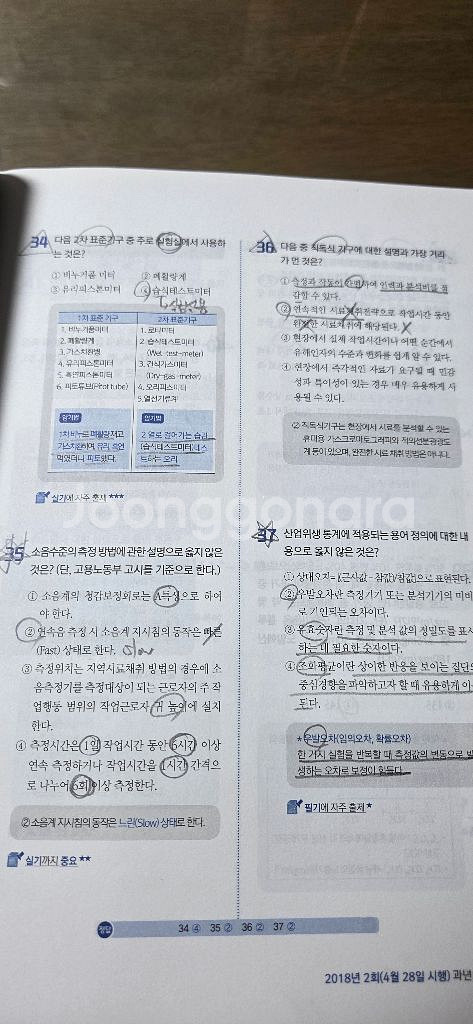 34 다음 2차 표준기구 중 주로 실험실에서 사용하
는 것은?
① 비누거품 미터 ② 폐활량계
③ 유리피스톤미터 ④ 습식테스트미터
1차 표준 기구 2차 표준기구
1. 비누거품미터 1. 로타미터
2. 폐활량계 2. 습식테스트미터
3. 가스치환병 (Wet-test-meter)
4. 유리피스톤미터 3. 건식가스미터
5. 흑연피스톤미터 (Dry-gas-meter)
6. 피토튜브(Pitot tube) 4. 오리피스미터
5. 열선기류계
암기법 암기법
1차비누로 폐활량재고 2 열로 걸어가는 습관
가스치환하여 유리 흑연 (습식테스트미터)테스
먹였더니 피토했다. 트하는 오리
실기에 자주 출제 ★★★
35 소음수준의 측정 방법에 관한 설명으로 옳지 않은
것은? (단, 고용노동부 고시를 기준으로 한다.)
① 소음계의 청감보정회로는 A특성으로 하여
야 한다.
② 연속음 측정 시 소음계 지시침의 동작은 빠른
(Fast) 상태로 한다. Slow
③ 측정위치는 지역시료채취 방법의 경우에 소
음측정기를 측정대상이 되는 근로자의 주 작
업행동 범위의 작업근로자 귀 높이에 설치
한다.
④ 측정시간은 1일 작업시간 동안 6시간 이상
연속 측정하거나 작업시간을 1시간 간격으
로 나누어 6회 이상 측정한다.
② 소음계 지시침의 동작은 느린(Slow) 상태로 한다.
실기까지 중요 ★★
36 다음 중 직독식 기구에 대한 설명과 가장 거리
가 먼 것은?
① 측정과 작동이 간편하여 인력과 분석비를 절
감할 수 있다.
② 연속적인 시료채취전략으로 작업시간 동안
한 시료채취에 해당된다.
③ 현장에서 실제 작업시간이나 어떤 순간에서
유해인자의 수준과 변화를 쉽게 알 수 있다.
④ 현장에서 즉각적인 자료가 요구될 때 민감
성과 특이성이 있는 경우 매우 유용하게 사
용될 수 있다.
② 직독식기구는 현장에서 시료를 분석할 수 있는
휴대용 가스크로마토그래피와 적외선분광광도
계 등이 있으며, 완전한 시료 채취 방법은 아니다.
37 산업위생 통계에 적용되는 용어 정의에 대한 내
용으로 옳지 않은 것은?
① 상대오차=[(근사값-참값)/참값]으로 표현된다.
② 우발오차란 측정기기 또는 분석기기의 미비
로 기인되는 오차이다.
③ 유효숫자란 측정 및 분석 값의 정밀도를 표시
하는 데 필요한 숫자이다.
④ 조화평균이란 상이한 반응을 보이는 집단의
중심경향을 파악하고자 할 때 유용하게 이
된다.
★우발오차(임의오차, 확률오차)
한 가지 실험을 반복할 때 측정값의 변동으로 발
생하는 오차로 보정이 힘들다.
필기에 자주 출제 ★
정답 34 ④ 35 ② 36 ② 37 ②
2018년 2회(4월 28일 시행) 과년
joonggonara